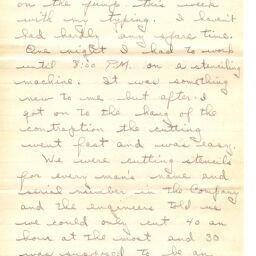 on the jump this week
with my typing. I haven't
had hardly any spare time.
One night I had to work
until 8:00 P.M. on a stenciling
machine. It was something
new to me but after I
got on to the hang of the
contraption the cutting
went fast and was easy.
We were cutting stencils
for every man's name and
serial number in the Company
and the engineers told us
we could only cut 40 an
hour at the most and 30
was supposed to be an